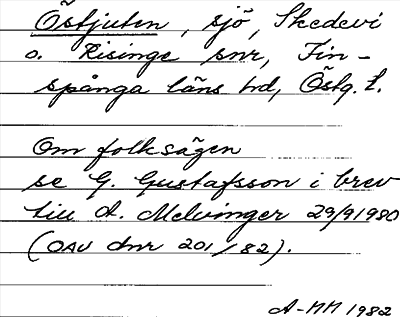 Östjuten, sjö, Skedevi
o. Risinge snr, Fin-
spånga läns hd, Östg. l.
Om folksägen
se G. Gustafsson i brev
till A. Melvinger 29/9 1980
(OAU dnr 201/82).
A-MM 1982